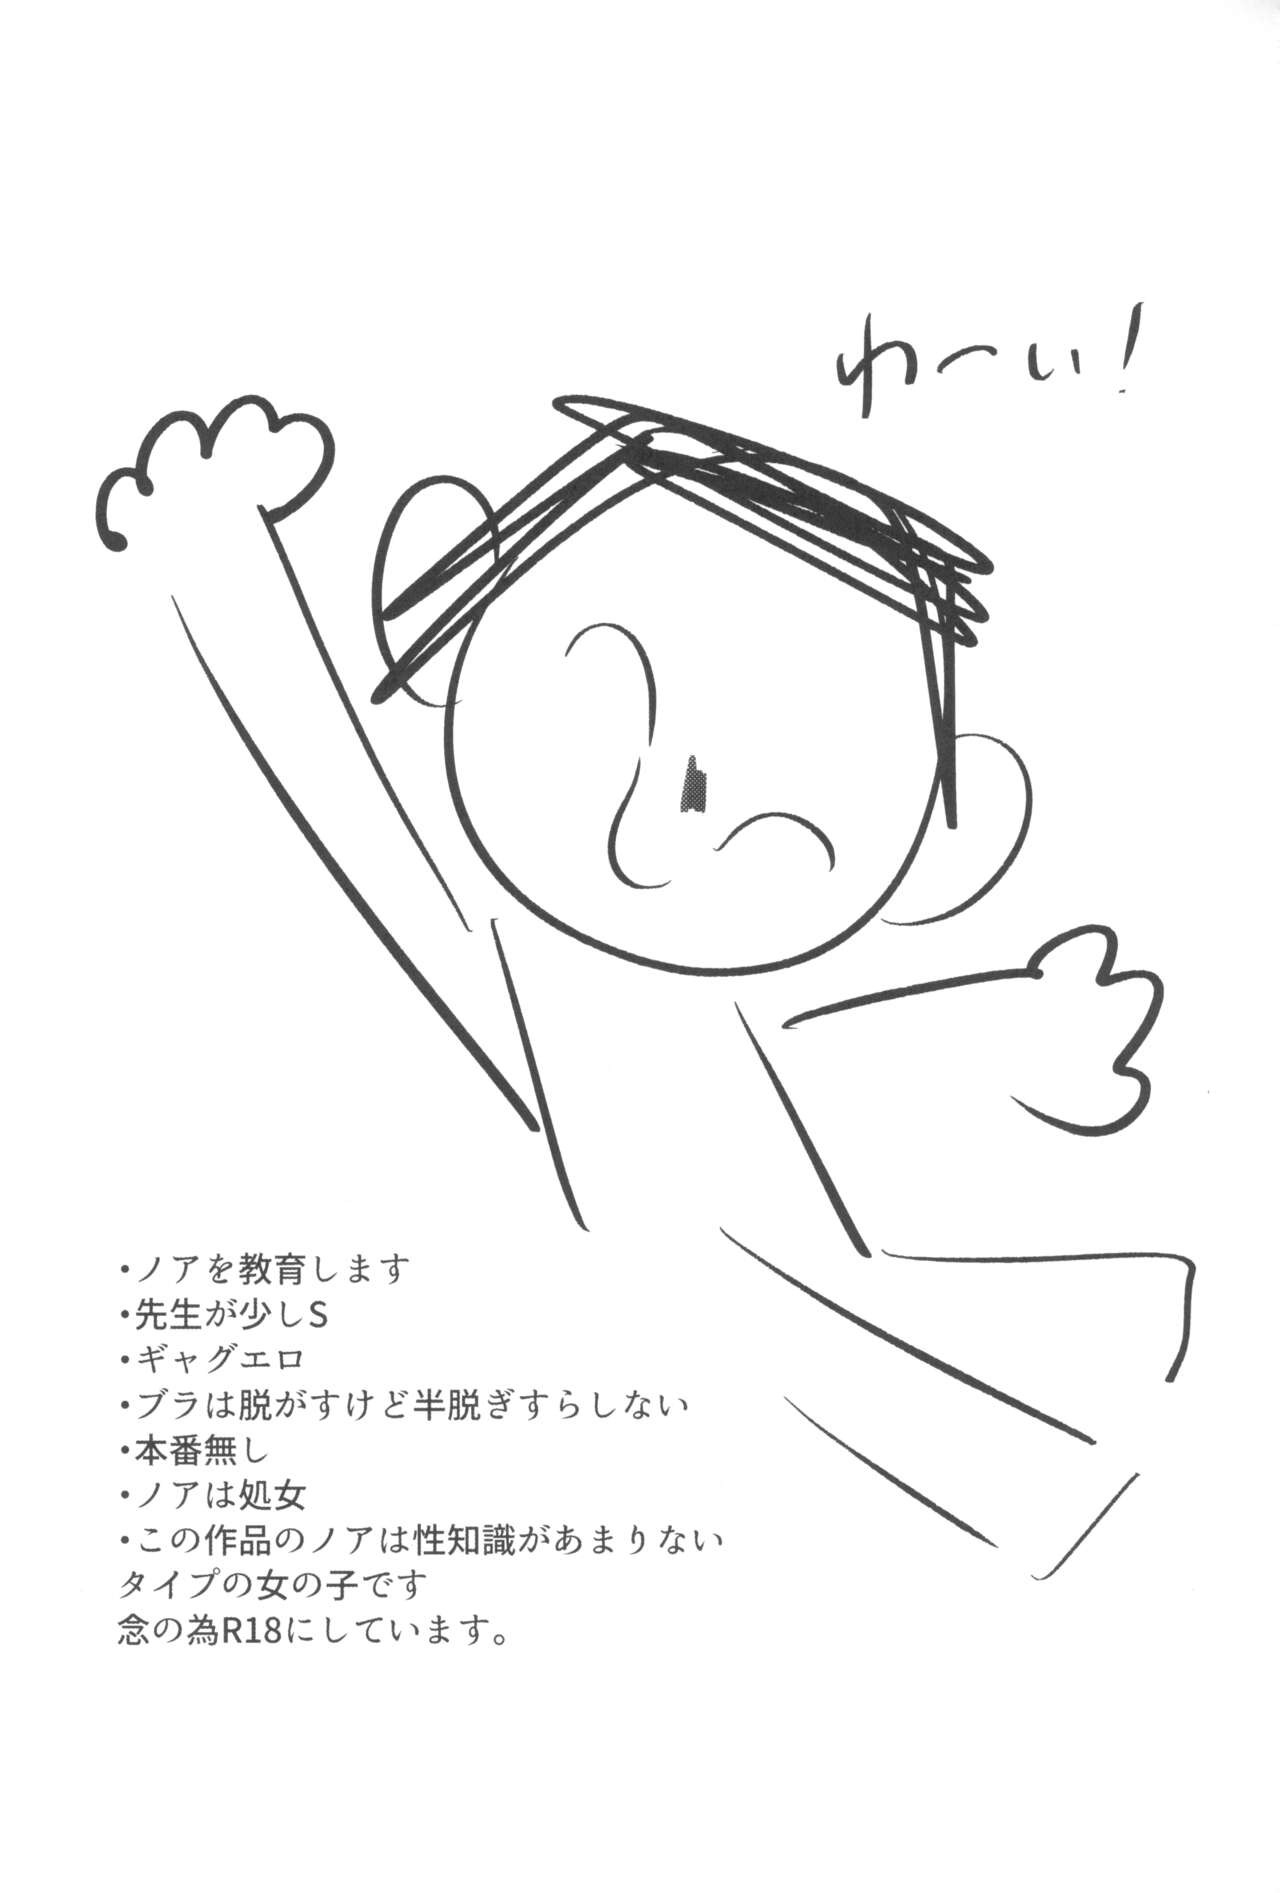 わーい!
・ノアを教育します
・先生が少しS
・ギャグエロ
・ブラは脱がすけど半脱ぎすらしない
・本番無し
・ノアは処女
・この作品のノアは性知識があまりない
タイプの女の子です
念の為R18にしています。